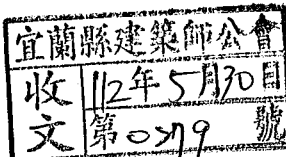 宜蘭縣建築師公會
收文
112年5月30日
第0719號